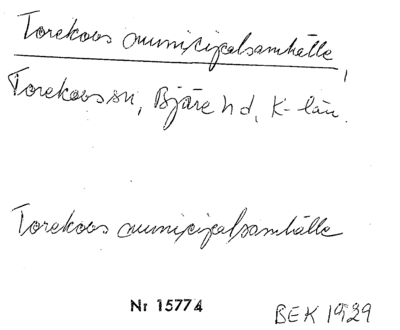 Torekovs municipalsamhälle,
Torekovs sn, Bjäre hd, K-län.
Torekovs municipalsamhälle
Nr 15774
BEK 1929